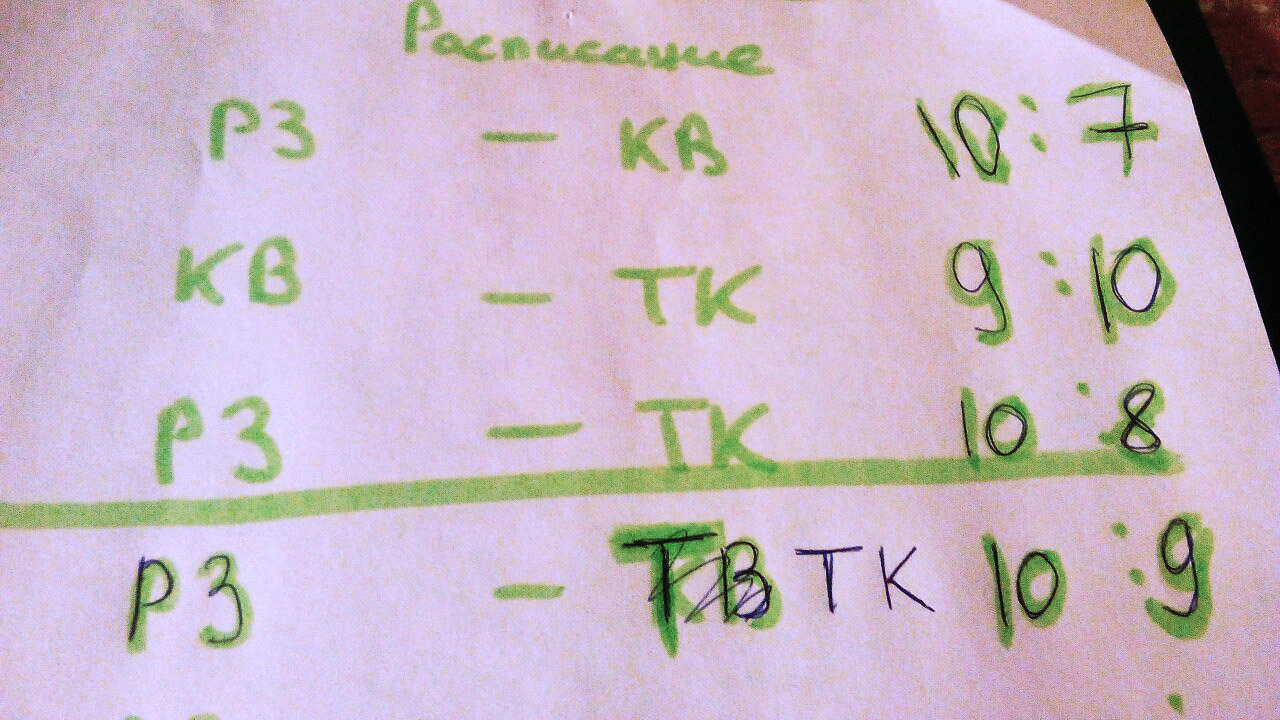 Расписание
РЗ — КВ 10:7
КВ — ТК 9:10
РЗ — ТК 10:8
РЗ — ТК 10:9